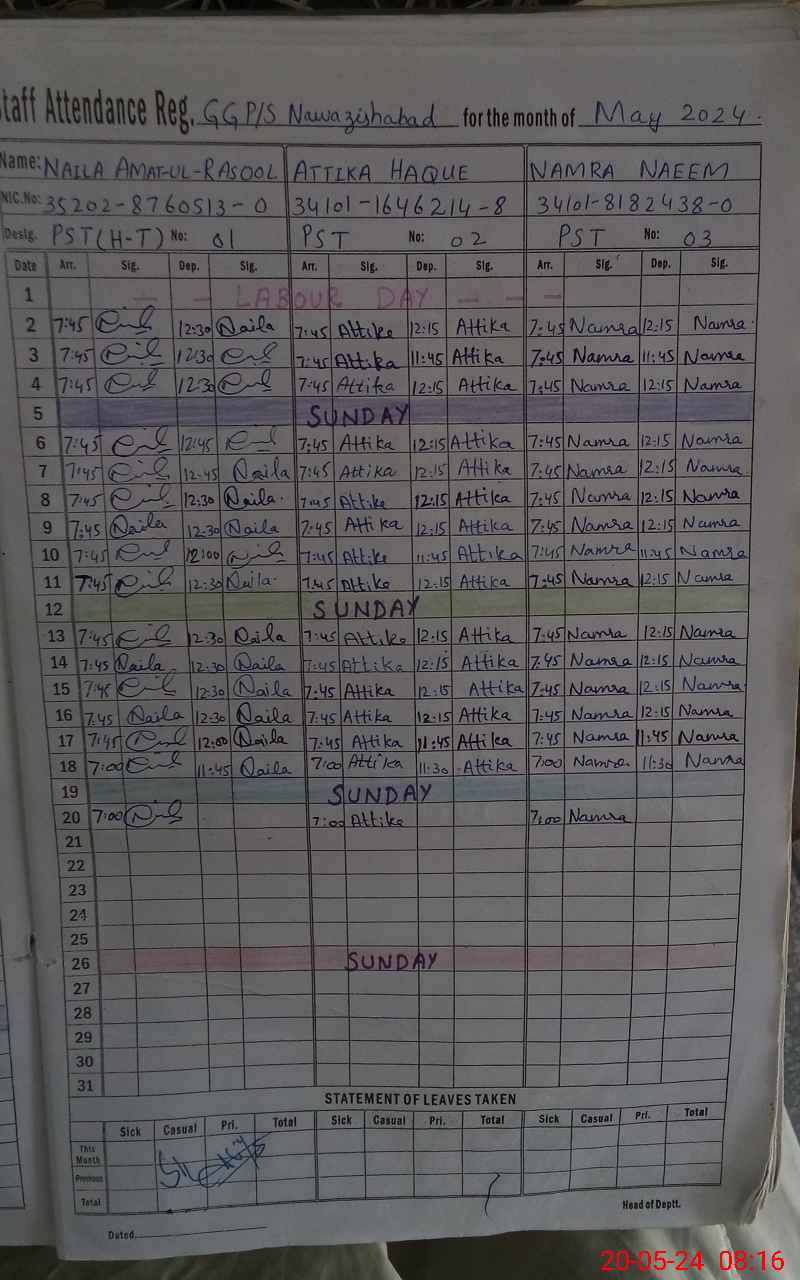 Staff Attendance Reg. GGP/S Nawazishabad for the month of May 2024.
Name: NAILA AMAT-UL-RASOOL ATTIKA HAQUE NAMRA NAEEM
NIC.No: 35202-8760513-0 34101-1646214-8 34101-8182438-0
Desig. PST(H-T) No: 01 PST No: 02 PST No: 03
Date Arr. Sig. Dep. Sig. Arr. Sig. Dep. Sig. Arr. Sig. Dep. Sig.
1 - - LABOUR DAY - - -
2 7:45 12:30 Naila 7:45 Attika 12:15 Attika 7:45 Namra 12:15 Namra
3 7:45 12:30 7:45 Attika 11:45 Attika 7:45 Namra 11:45 Namra
4 7:45 12:30 7:45 Attika 12:15 Attika 7:45 Namra 12:15 Namra
5 SUNDAY
6 7:45 12:45 7:45 Attika 12:15 Attika 7:45 Namra 12:15 Namra
7 7:45 12:45 Naila 7:45 Attika 12:15 Attika 7:45 Namra 12:15 Namra
8 7:45 12:30 Naila 7:45 Attika 12:15 Attika 7:45 Namra 12:15 Namra
9 7:45 Naila 12:30 Naila 7:45 Attika 12:15 Attika 7:45 Namra 12:15 Namra
10 7:45 12:00 7:45 Attika 11:45 Attika 7:45 Namra 11:45 Namra
11 7:45 12:30 Naila 7:45 Attika 12:15 Attika 7:45 Namra 12:15 Namra
12 SUNDAY
13 7:45 12:30 Naila 7:45 Attika 12:15 Attika 7:45 Namra 12:15 Namra
14 7:45 Naila 12:30 Naila 7:45 Attika 12:15 Attika 7:45 Namra 12:15 Namra
15 7:45 12:30 Naila 7:45 Attika 12:15 Attika 7:45 Namra 12:15 Namra
16 7:45 Naila 12:30 Naila 7:45 Attika 12:15 Attika 7:45 Namra 12:15 Namra
17 7:45 12:00 Naila 7:45 Attika 11:45 Attika 7:45 Namra 11:45 Namra
18 7:00 11:45 Naila 7:00 Attika 11:30 Attika 7:00 Namra 11:30 Namra
19 SUNDAY
20 7:00 7:00 Attika 7:00 Namra
21
22
23
24
25
26 SUNDAY
27
28
29
30
31
STATEMENT OF LEAVES TAKEN
Sick Casual Pri. Total Sick Casual Pri. Total Sick Casual Pri. Total
This Month
Previous
Total
Head of Deptt.
Dated.
20-05-24 08:16